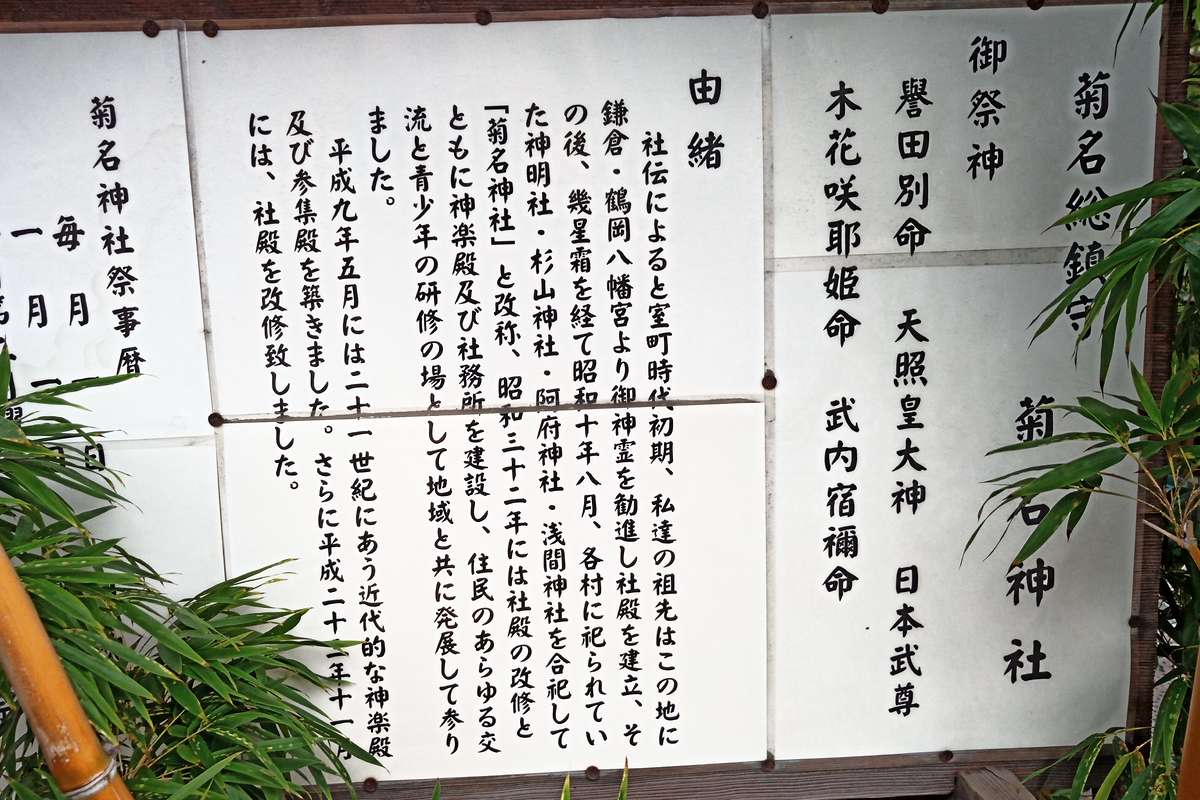 菊名総鎮守
菊名神社
御祭神
誉田別命 天照皇大神 日本武尊
木花咲耶姫命 武内宿禰命
由緒
社伝によると室町時代初期、私達の祖先はこの地に
鎌倉・鶴岡八幡宮より御神霊を勧進し社殿を建立、そ
の後、幾星霜を経て昭和十年八月、各村に祀られてい
た神明社・杉山神社・阿府神社・浅間神社を合祀して
「菊名神社」と改称、昭和三十二年には社殿の改修と
ともに神楽殿及び社務所を建設し、住民のあらゆる交
流と青少年の研修の場として地域と共に発展して参り
ました。
平成九年五月には二十一世紀にあう近代的な神楽殿
及び参集殿を築きました。さらに平成二十 年十一月
には、社殿を改修致しました。
菊名神社祭事暦
毎月 日
一月